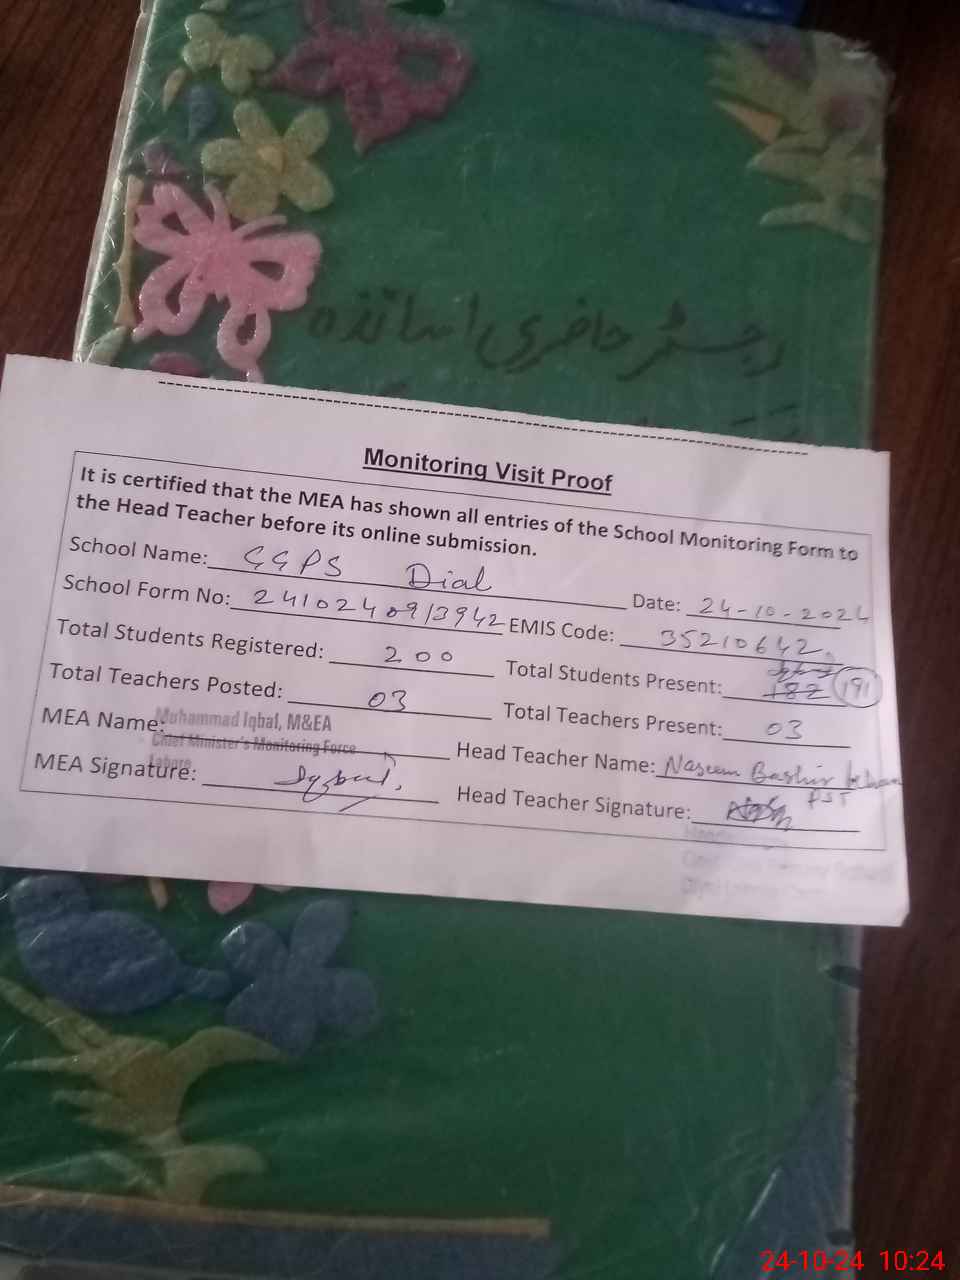 رجسٹر حاضری اساتذہ
Monitoring Visit Proof
It is certified that the MEA has shown all entries of the School Monitoring Form to
the Head Teacher before its online submission.
School Name: GGPS Dial Date: 24-10-2024
School Form No: 24102409/3942 EMIS Code: 35210642
Total Students Registered: 200 Total Students Present: 187 191
Total Teachers Posted: 03 Total Teachers Present: 03
MEA Name: Muhammad Iqbal, M&EA
Chief Minister's Monitoring Force
Lahore
Head Teacher Name: Naseem Bashir
PST
MEA Signature: Iqbal
Head Teacher Signature:
24-10-24 10:24